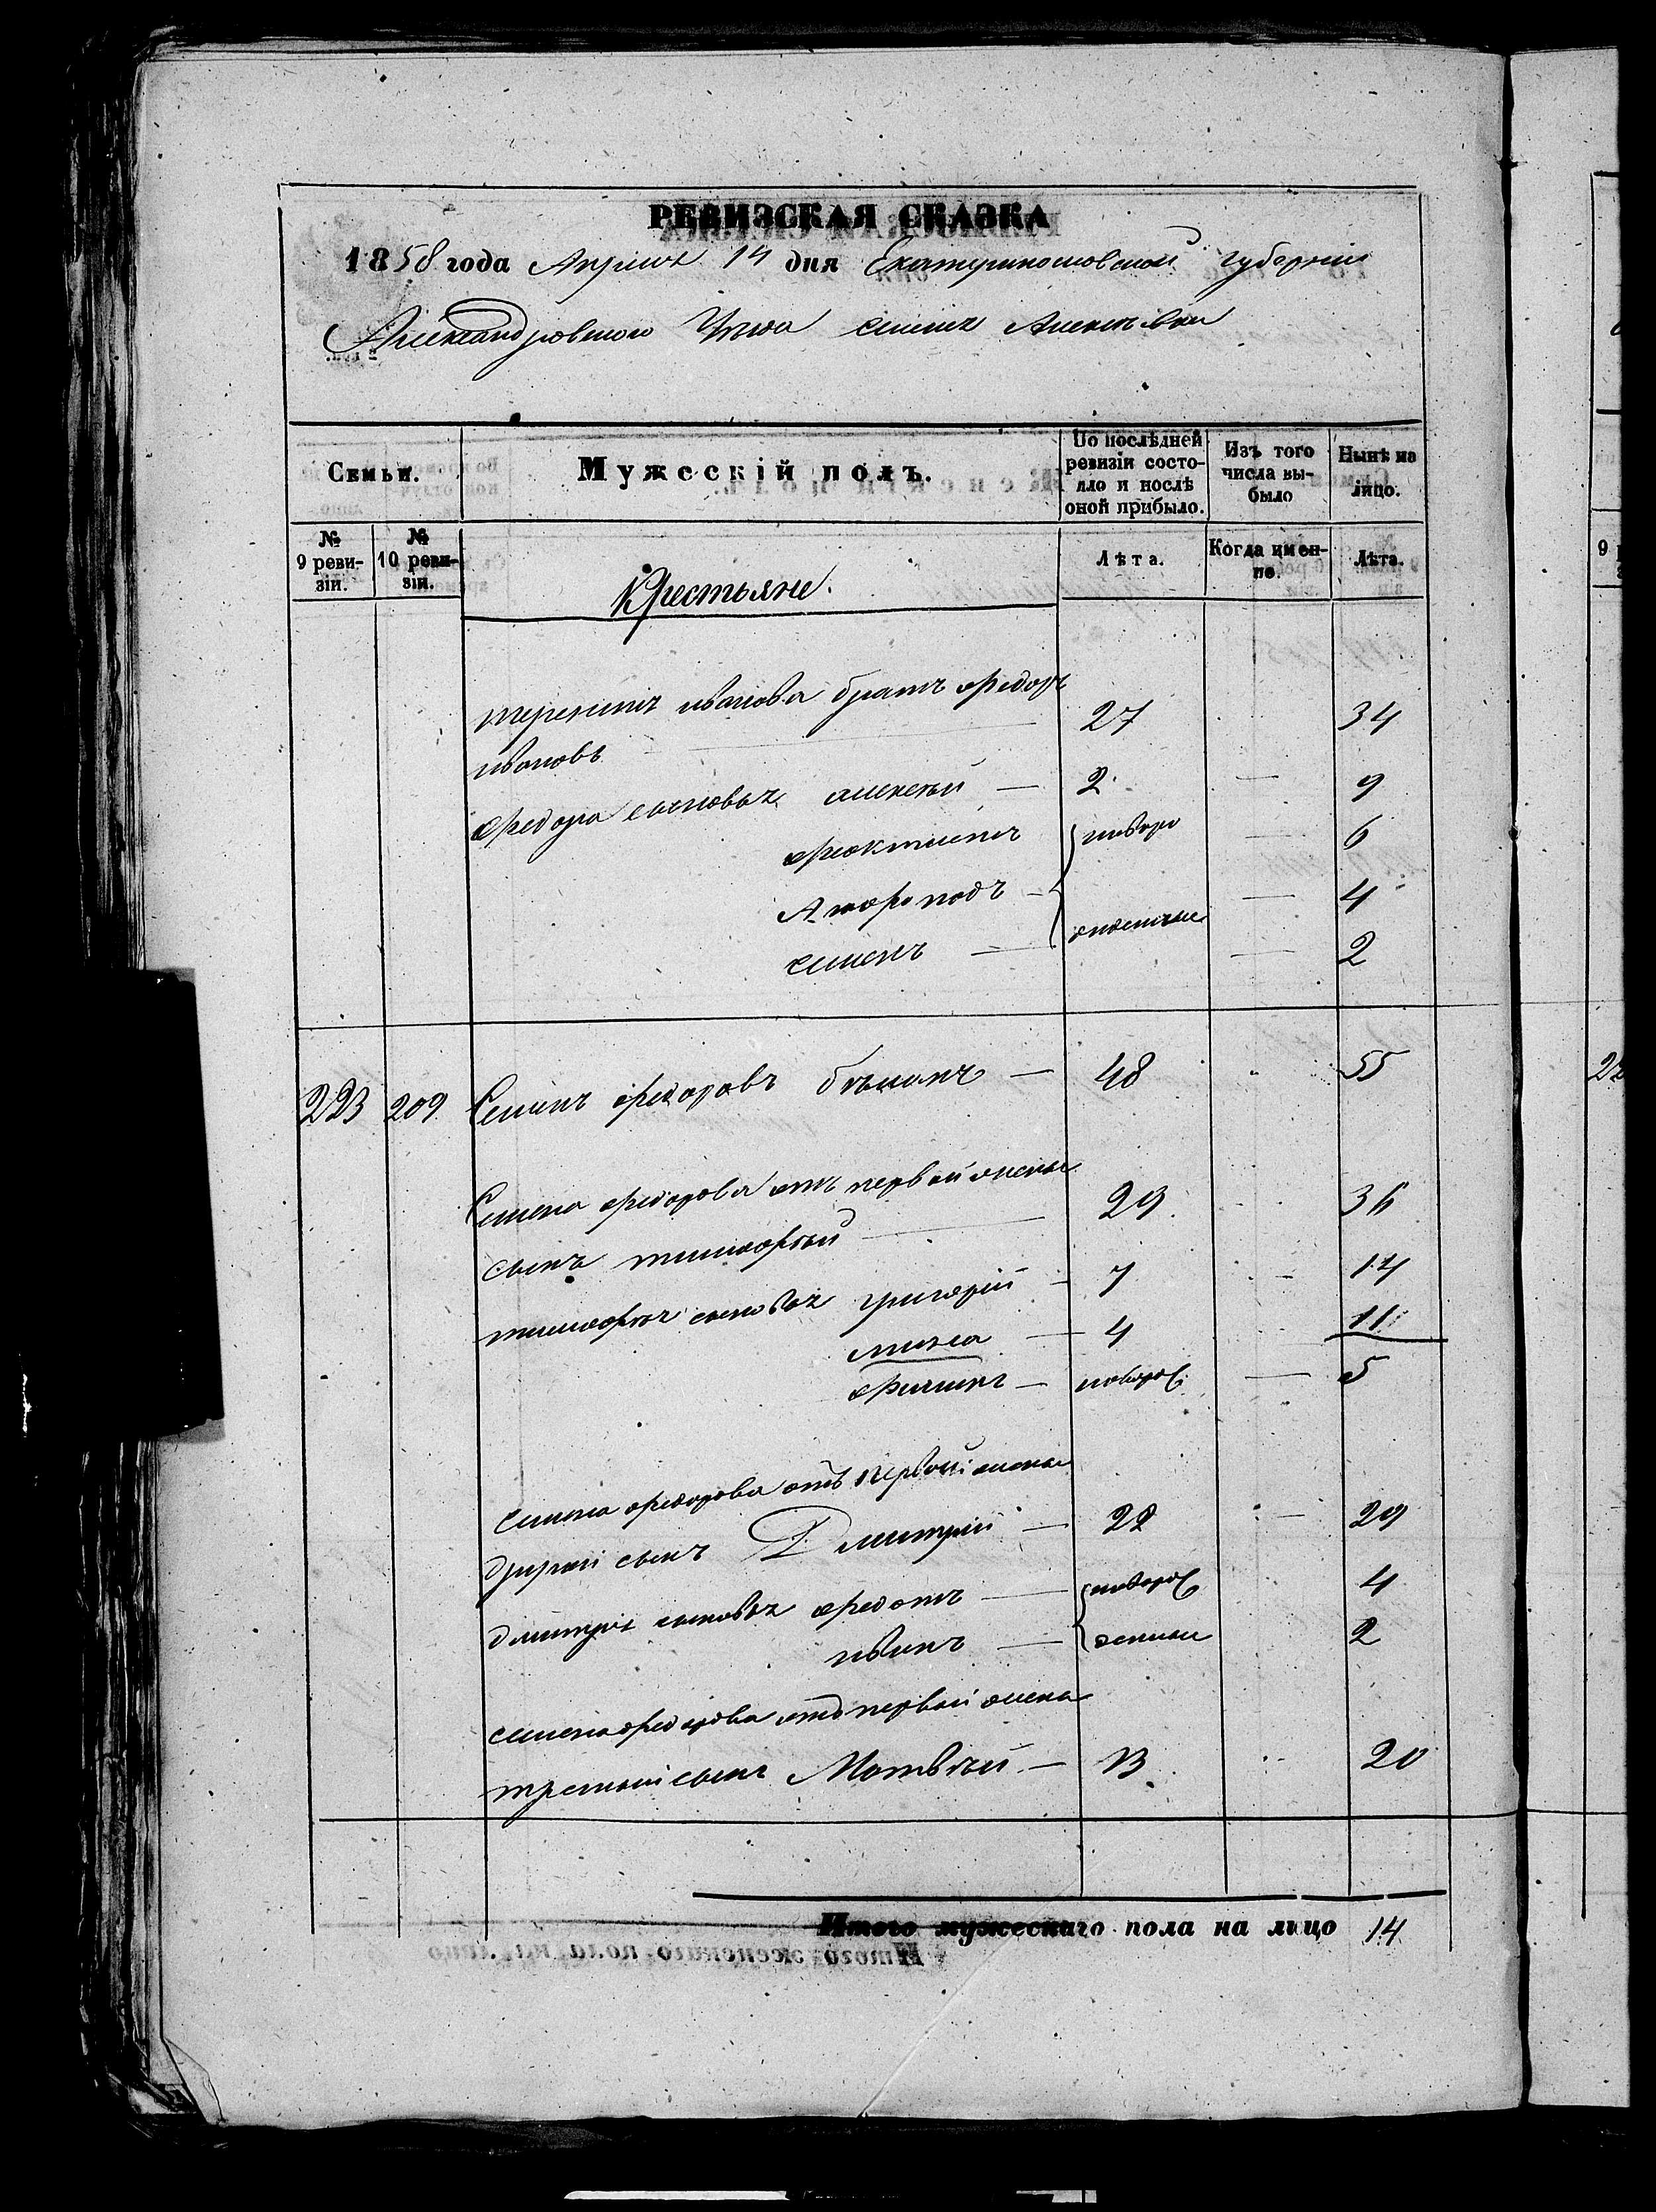 РЕВИЗСКАЯ СКАЗКА
1858 года Апреля 14 дня Екатеринославской губернии
Александровского Уезда
Семьи.
Мужескій полъ.
По послѣдней ревизіи состояло и послѣ оной прибыло.
Изъ того числа выбыло
Нынѣ на лицо.
№ 9 ревизіи.
№ 10 ревизіи.
Крестьяне.
Лѣта.
Когда именно.
Лѣта.
иванова братъ федоръ
ивановъ 27 34
федора сыновья алексѣй — 2 — 9
феоктистъ новоро — 6
— — 4
семенъ — — 2
223 209 Семенъ федоровъ — 48 55
Семена федорова отъ первой жены
сынъ тимофѣй 29 36
тимофѣя сыновья григорій — 7 14
мина — 4 11
филипъ — новорож — 5
семена федорова отъ первой жены
другой сынъ Дмитрій — 22 29
дмитрія сыновья федотъ — новорож 4
иванъ — денные 2
семена федорова отъ первой жены
третій сынъ Матвѣй — 13 20
Итого мужескаго пола на лицо 14